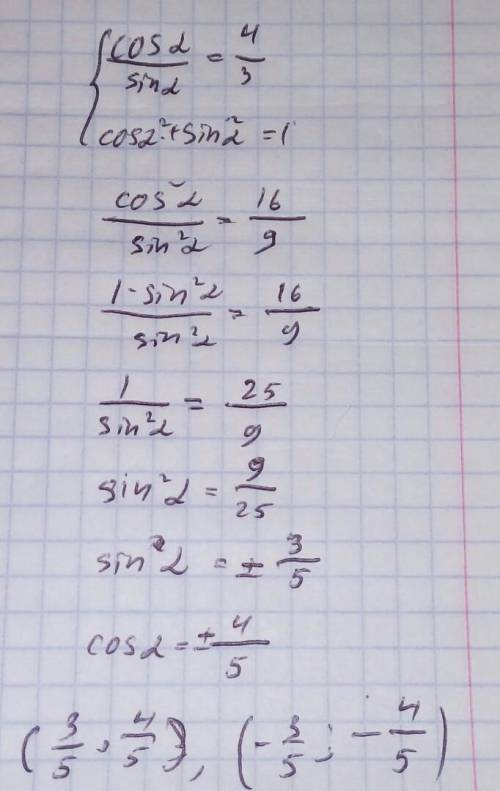 { cos α / sin α = 4 / 3
cos α² + sin α² = 1
cos² α / sin² α = 16 / 9
1 - sin² α / sin² α = 16 / 9
1 / sin² α = 25 / 9
sin² α = 9 / 25
sin α = ± 3 / 5
cos α = ± 4 / 5
(3/5, 4/5), (-3/5; -4/5)